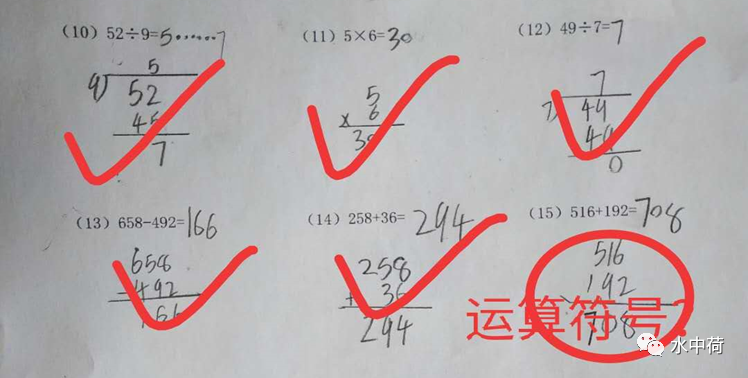 (10) 52÷9=5……7
(11) 5×6=30
(12) 49÷7=7
5
9 52
45
7
5
× 6
30
7
7 49
49
0
(13) 658-492=166
(14) 258+36=294
(15) 516+192=708
658
-492
166
258
+ 36
294
516
192
708
运算符号?
水中荷